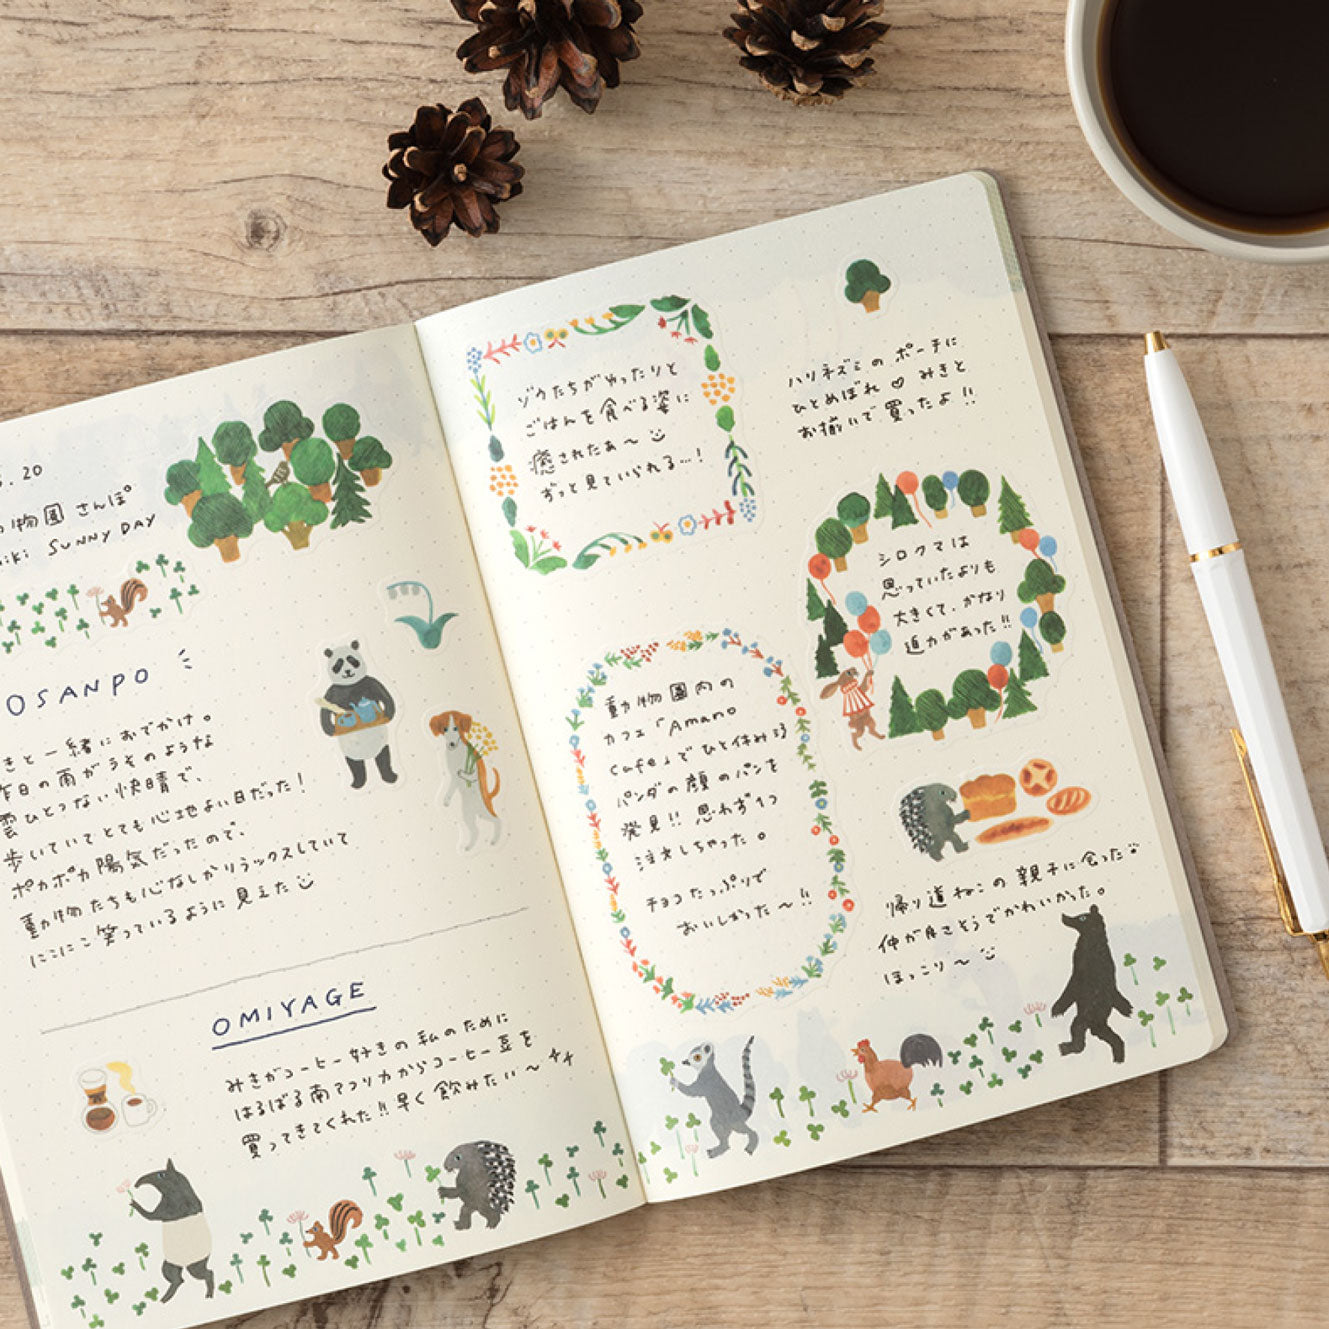 . 20
物園 さんぽ
iki SUNNY DAY
OSANPO
きと一緒におでかけ。
昨日の雨がうそのような
雲ひとつない快晴で、
歩いていてとても心地よい日だった！
ポカポカ陽気だったので、
動物たちも心なしかリラックスしていて
にこにこ笑っているように見えた
OMIYAGE
みきがコーヒー好きの私のために
はるばる南アフリカからコーヒー豆を
買ってきてくれた!! 早く飲みたい〜
ゾウたちがゆったりと
ごはんを食べる姿に
癒されたぁ〜
ずっと見ていられる…！
ハリネズミのポーチに
ひとめぼれ♡ みきと
お揃いで買ったよ!!
シロクマは
思っていたよりも
大きくて、かなり
迫力があった!!
動物園内の
カフェ「Amano
Cafe」でひと休み
パンダの顔のパンを
発見!! 思わず1つ
注文しちゃった。
チョコたっぷりで
おいしかった〜!!
帰り道ねこの親子に会った
仲が良さそうでかわいかった。
ほっこり〜